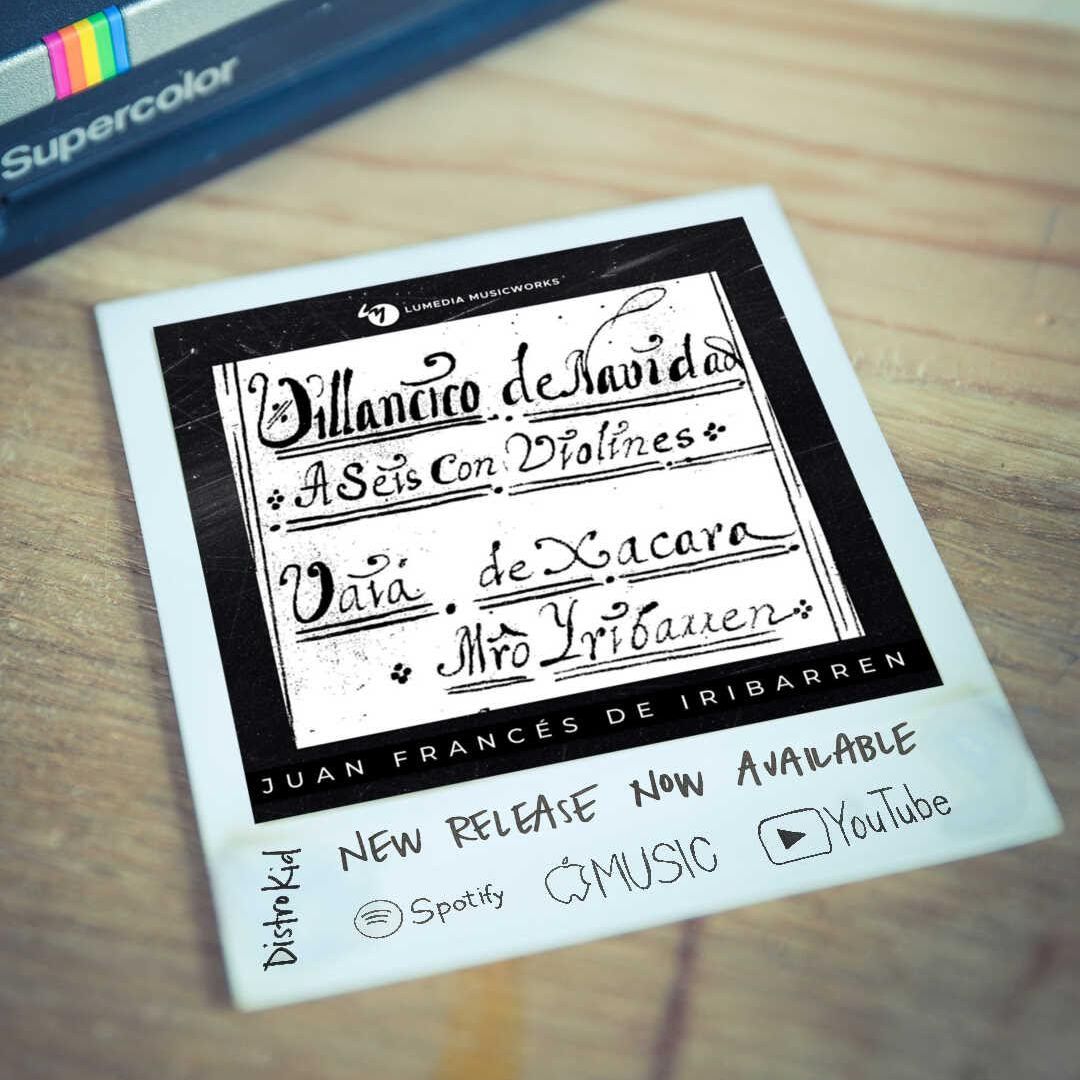 Supercolor
LUMEDIA MUSICWORKS
Villancico de Navidad
A Seis Con Violines
Vaia de Xacara
Mrô Yribarren
JUAN FRANCÉS DE IRIBARREN
NEW RELEASE NOW AVAILABLE
Spotify MUSIC YouTube
DistroKid